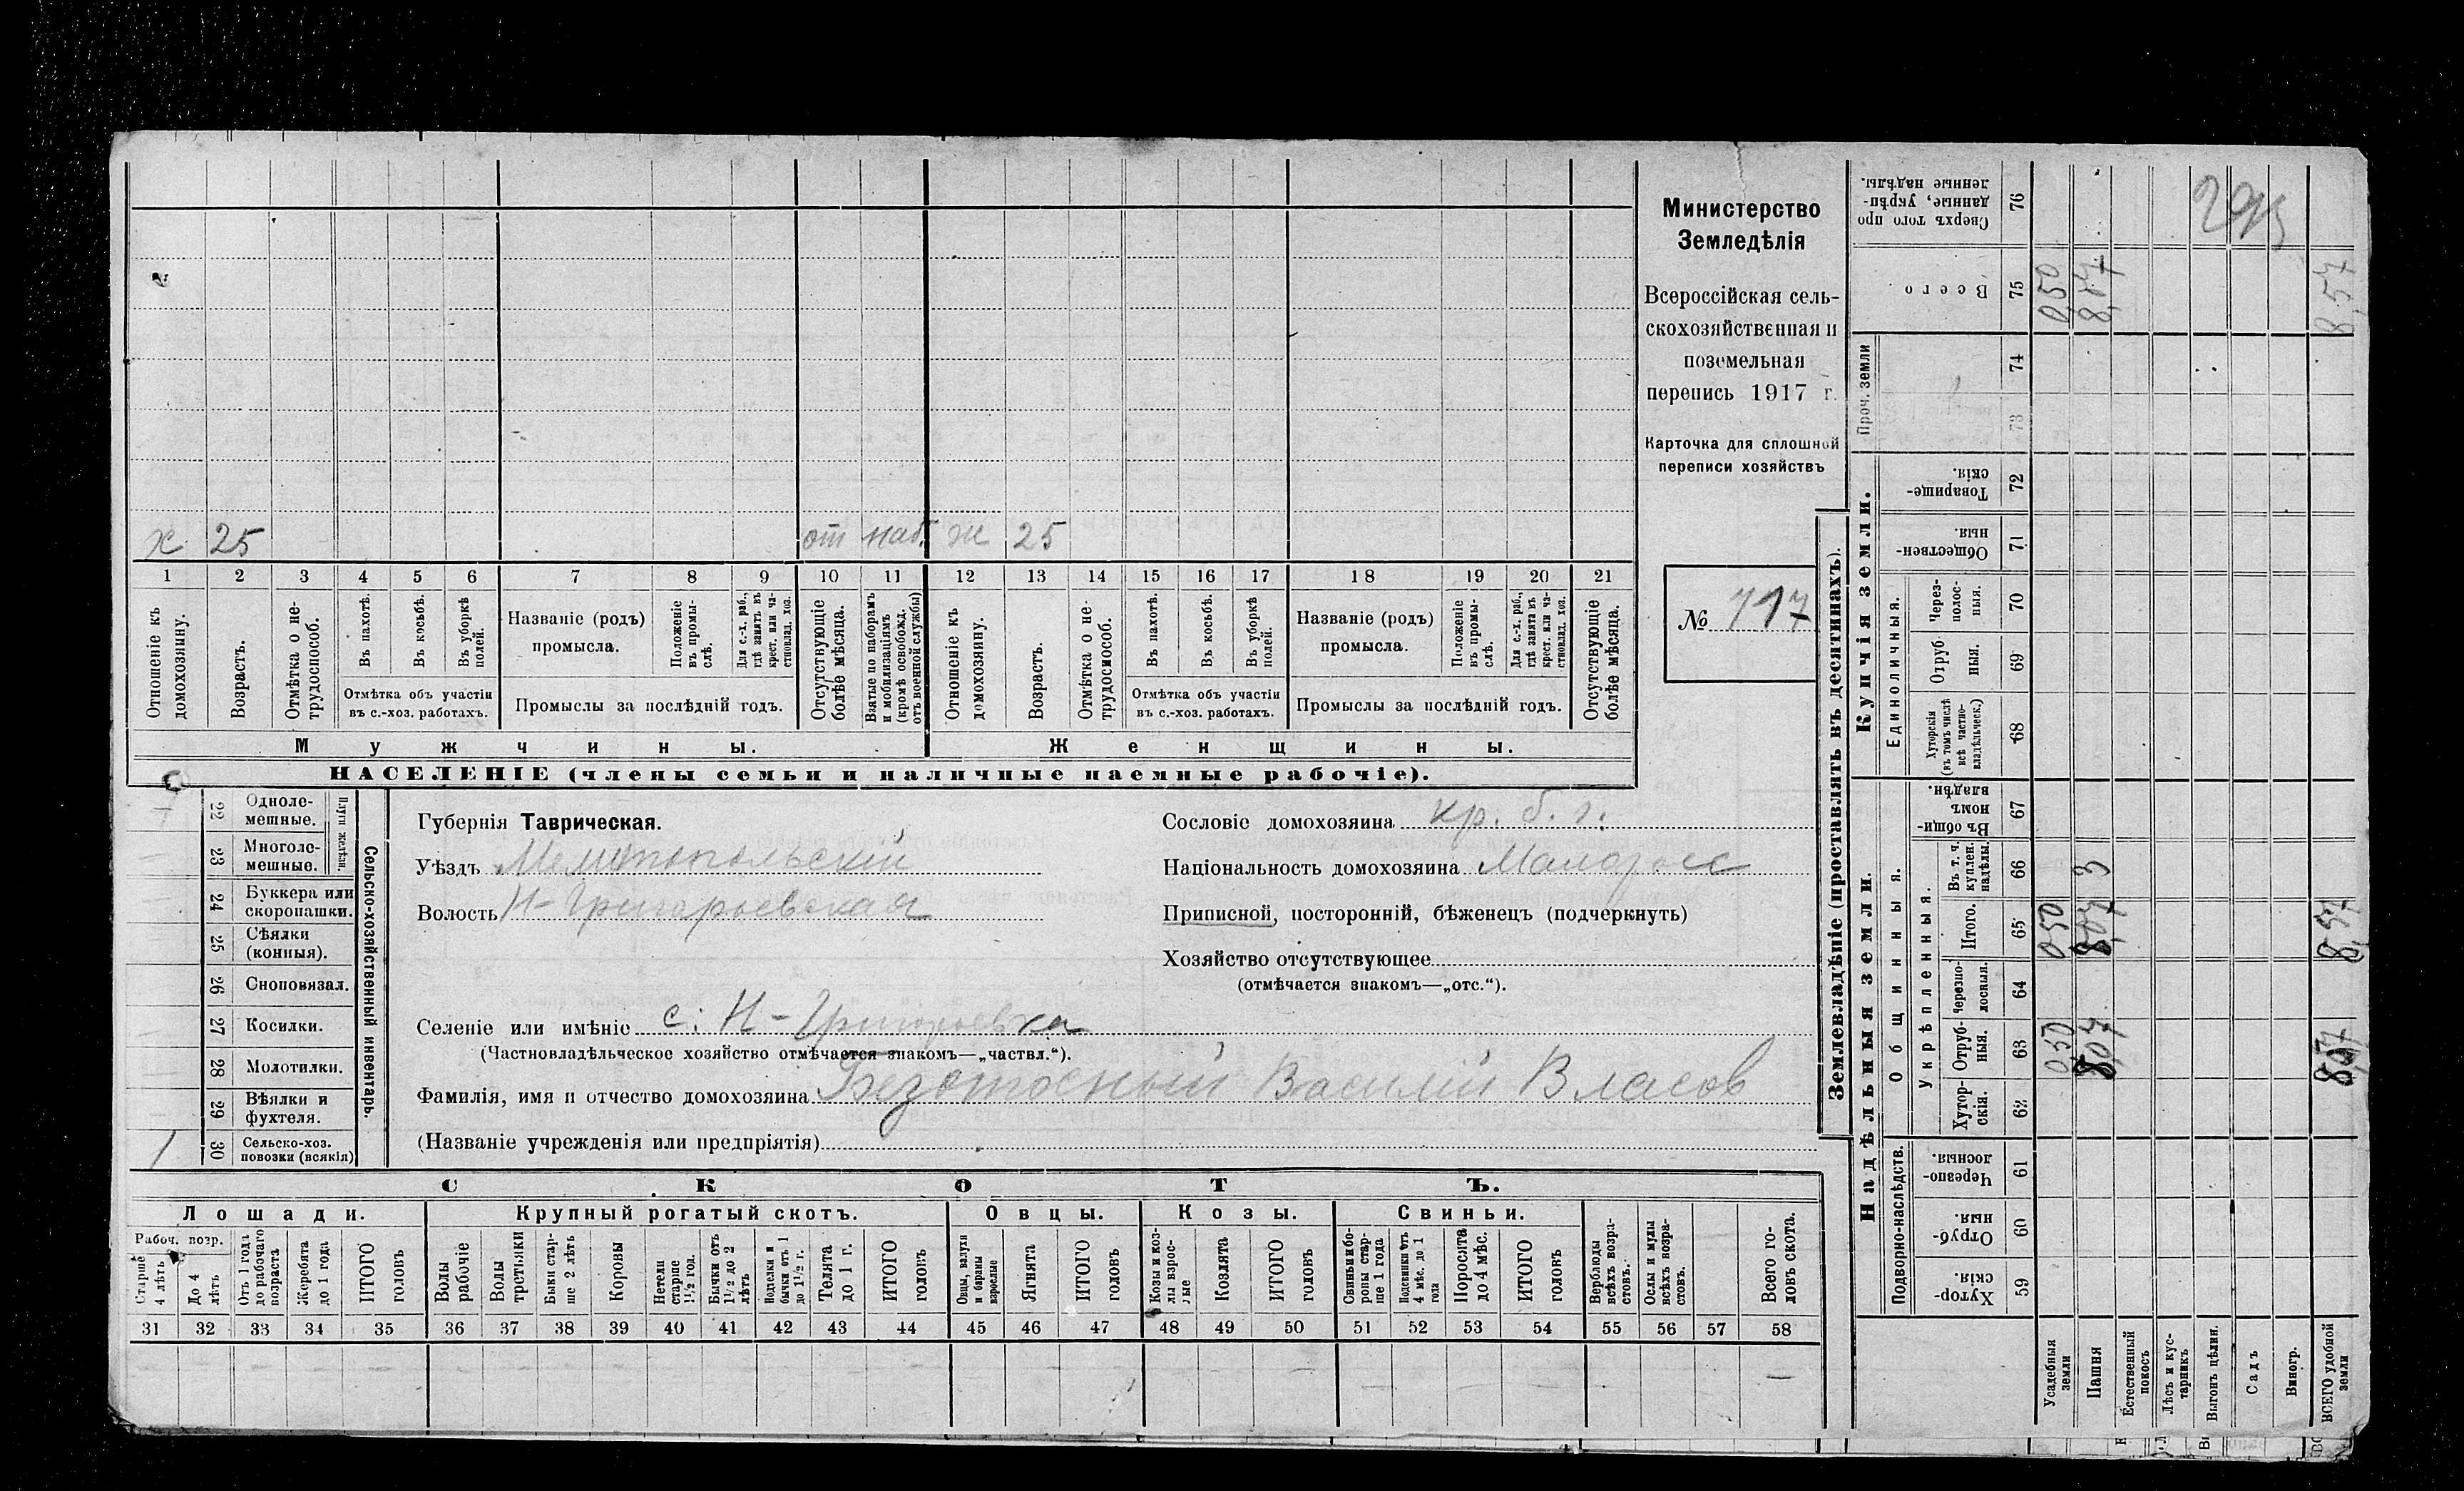 Министерство
Земледѣлія
Всероссійская сель-
скохозяйственная и
поземельная
перепись 1917 г.
Карточка для сплошной
переписи хозяйствъ
№ 717
х 25 от наб. ж 25
1 2 3 4 5 6 7 8 9 10 11 12 13 14 15 16 17 18 19 20 21
Отношеніе къ домохозяину.
Возрастъ.
Отмѣтка о не-
трудоспособ.
Въ пахотѣ.
Въ косьбѣ.
Въ уборкѣ
полей.
Отмѣтка объ участіи
въ с.-хоз. работахъ.
Названіе (родъ)
промысла.
Положеніе
въ промы-
слѣ.
Для с.-х. раб.,
гдѣ занятъ въ
крест. или ча-
стновлад. хоз.
Промыслы за послѣдній годъ.
Отсутствующіе
болѣе мѣсяца.
Взятые по наборамъ
и мобилизаціямъ
(кромѣ освобожд.
отъ военной службы)
Отношеніе къ
домохозяину.
Возрастъ.
Отмѣтка о не-
трудоспособ.
Въ пахотѣ.
Въ косьбѣ.
Въ уборкѣ
полей.
Отмѣтка объ участіи
въ с.-хоз. работахъ.
Названіе (родъ)
промысла.
Положеніе
въ промы-
слѣ.
Для с.-х. раб.,
гдѣ занята въ
крест. или ча-
стновлад. хоз.
Промыслы за послѣдній годъ.
Отсутствующіе
болѣе мѣсяца.
Мужчины.
Женщины.
НАСЕЛЕНІЕ (члены семьи и наличные наемные рабочіе).
Сельско-хозяйственный инвентарь.
Плуги желѣзн.
22 Одноле-
мешные.
23 Многоле-
мешные.
24 Буккера или
скоропашки.
25 Сѣялки
(конныя).
26 Сноповязал.
27 Косилки.
28 Молотилки.
29 Вѣялки и
фухтеля.
1 30 Сельско-хоз.
повозки (всякія)
Губернія Таврическая.
Уѣздъ Мелитопольскій
Волость Н-Григорьевская
Сословіе домохозяина кр. б. г.
Національность домохозяина Малоросс
Приписной, посторонній, бѣженец (подчеркнуть)
Хозяйство отсутствующее
(отмѣчается знакомъ—„отс.“).
Селеніе или имѣніе с. Н-Григорьевка
(Частновладѣльческое хозяйство отмѣчается знакомъ—„частвл.“).
Фамилія, имя и отчество домохозяина Безотосный Василій Власов
(Названіе учрежденія или предпріятія)
СКОТЪ.
Лошади. Крупный рогатый скотъ. Овцы. Козы. Свиньи.
Рабоч. возр.
Старше
4 лѣтъ
До 4
лѣтъ
Отъ 1 года
до рабочаго
возраста
Жеребята
до 1 года
ИТОГО
головъ
Волы
рабочіе
Волы
третьяки
Быки стар-
ше 2 лѣтъ
Коровы
Нетели
старше
1½ год.
Бычки отъ
1½ до 2
лѣтъ
Подтелки и
бычки отъ 1
до 1½ г.
Телята
до 1 г.
ИТОГО
головъ
Овцы, валухи
и бараны
взрослые
Ягнята
ИТОГО
головъ
Козы и коз-
лы взрос-
лые
Козлята
ИТОГО
головъ
Свиньи и бо-
ровы стар-
ше 1 года
Подсвинки отъ
4 мѣс. до 1
года
Поросята
до 4 мѣс.
ИТОГО
головъ
Верблюды
всѣхъ возра-
стовъ.
Ослы и мулы
всѣхъ возра-
стовъ.
Всего го-
ловъ скота.
31 32 33 34 35 36 37 38 39 40 41 42 43 44 45 46 47 48 49 50 51 52 53 54 55 56 57 58
Землевладѣніе (проставлять въ десятинахъ).
Надѣльныя земли.
Купчія земли.
Проч. земли
Подворно-наслѣдств.
Общинныя.
Укрѣпленныя.
Единоличныя.
Хутор-
скія. 59
Отруб-
ныя. 60
Черезпо-
лосныя. 61
Хутор-
скія. 62
Отруб-
ныя. 63 0,50 8,07 8,57
Черезпо-
лосныя. 64
Итого. 65 0,50 8,07 8,57
Въ т. ч.
куплен.
надѣлы. 66 3
Въ общи-
номъ
владѣн. 67
Хуторскія
(въ томъ числѣ
всѣ частно-
владѣльческ.) 68
Отруб
ныя. 69
Через-
полос-
ныя. 70
Обществен-
ныя 71
Товарище-
скія. 72
73
74
Всего 75 0,50 8,07 8,57
Сверхъ того про
данные, укрѣп-
ленные надѣлы. 76
Усадебныя
земли
Пашня
Естественный
покосъ
Лѣсъ и кус-
тарникъ
Выгонъ цѣлин.
Садъ
Виногр.
ВСЕГО удобной
земли